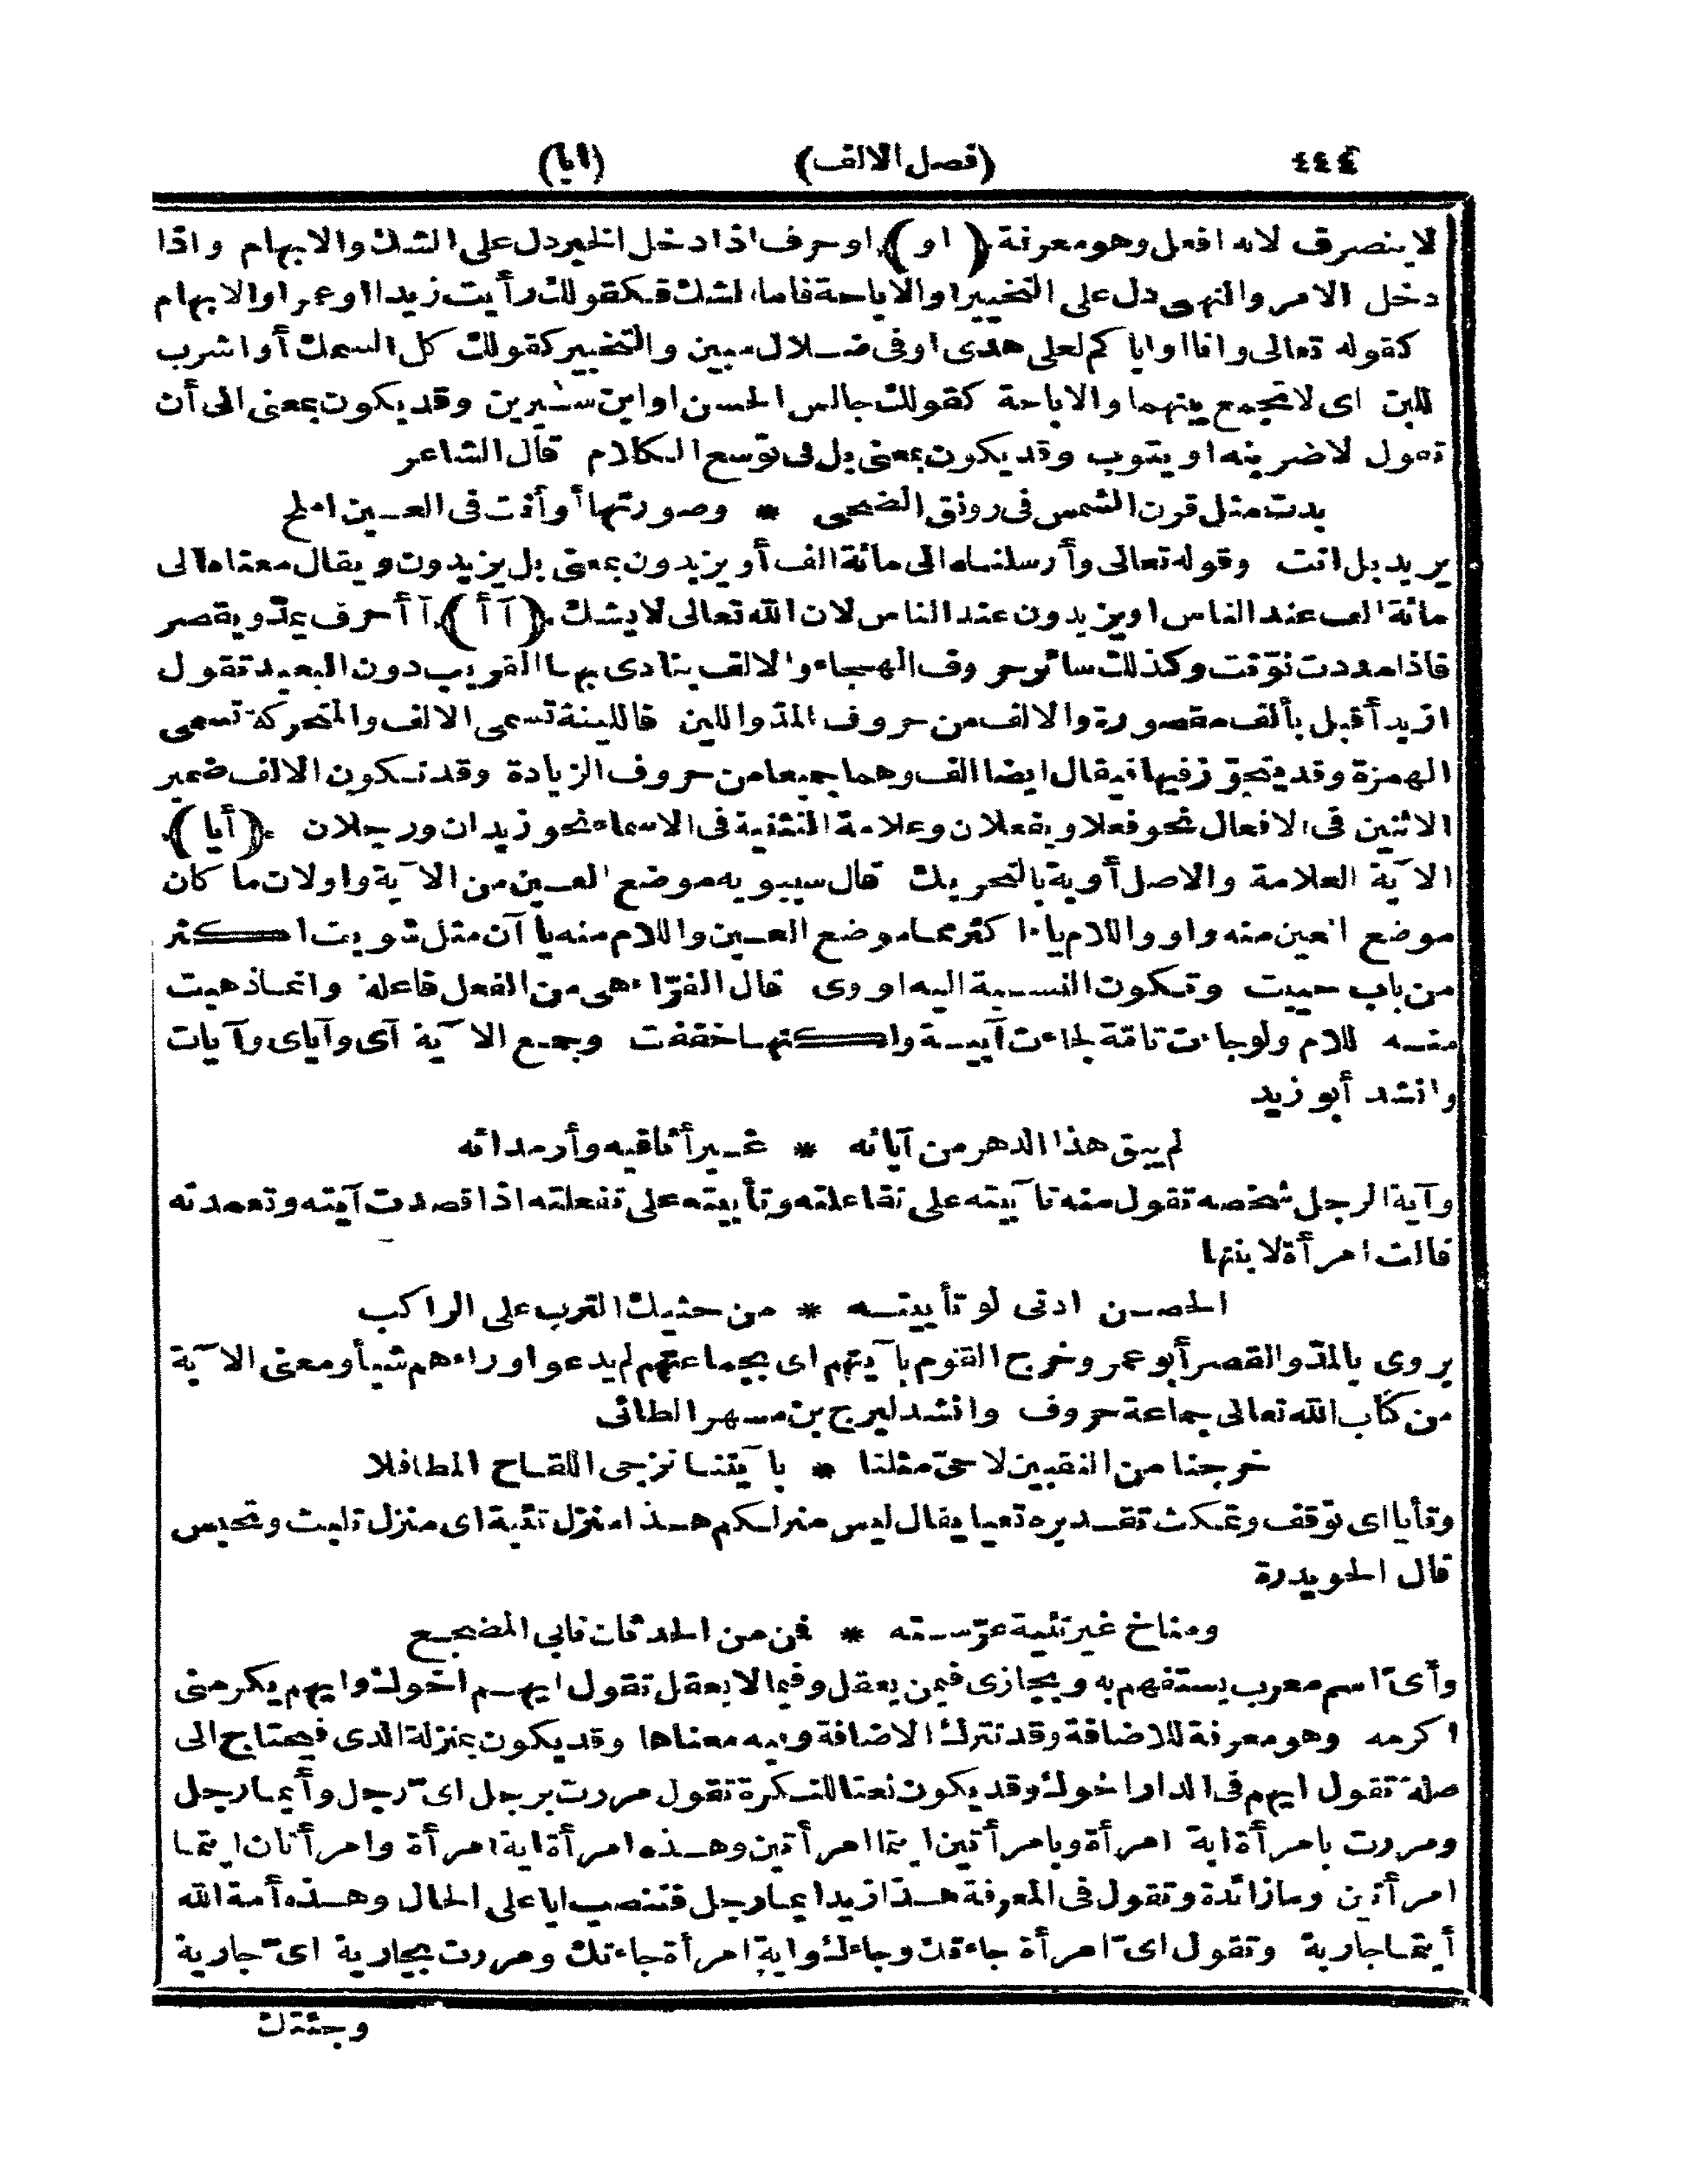 ٤٤٤ (فصل الالف) (ايا)
لا ينصرف لانه افعل وهو معرفة ﴿ او ﴾ او حرف اذا دخل الخبر دل على الشك والابهام واذا
دخل الامر والنهى دل على التخيير او الاباحة فاما الشك فكقولك رأيت زيدا او عمرا والابهام
كقوله تعالى وانا او اياكم لعلى هدى او فى ضلال مبين والتخيير كقولك كل السمك أو اشرب
للبن اى لا تجمع بينهما والاباحة كقولك جالس الحسن او ابن سيرين وقد يكون بمعنى الى أن
تقول لاضربنه او يتوب وقد يكون بمعنى بل فى توسع الكلام قال الشاعر
بدت مثل قرن الشمس فى رونق الضحى * وصورتها أو أنت فى العين املح
يريد بل انت وقوله تعالى وأرسلناه الى مائة الف أو يزيدون بمعنى بل يزيدون ويقال معناه الى
مائة الف عند الناس او يزيدون عند الناس لان الله تعالى لا يشك ﴿ آ أ ﴾ آ أ حرف يمدّ ويقصر
فاذا مددت نوّنت وكذلك سائر حروف الهجاء والالف ينادى بها القريب دون البعيد تقول
ازيد أقبل بألف مقصورة والالف من حروف المدّ واللين فاللينة تسمى الالف والمتحركة تسمى
الهمزة وقد يتجوّز فيها فيقال ايضا الف وهما جميعا من حروف الزيادة وقد تكون الالف ضمير
الاثنين فى الافعال نحو فعلا ويفعلان وعلامة التثنية فى الاسماء نحو زيدان ورجلان ﴿ أيا ﴾
الآية العلامة والاصل أوية بالتحريك قال سيبويه موضع العين من الآية واو لان ما كان
موضع العين منه واو واللام ياء اكثر مما موضع العين واللام منه يا آن مثل شويت اكثر
من باب حييت وتكون النسبة اليه اووى قال الفرّاء هى من الفعل فاعلة وانما ذهبت
منه للام ولو جاءت تامّة لجاءت آيية ولكنها خففت وجمع الآية آى وآياى وآيات
وانشد أبو زيد
لم يبق هذا الدهر من آيائه * غير أثافيه وأرمدائه
وآية الرجل شخصه تقول منه تآييته على تفاعلته وتأييته على تفعلته اذا قصدت آيته وتعمدته
قالت امرأة لابنتها
الحصن ادنى لو تأييته * من حثيك الترب على الراكب
يروى بالمدّ والقصر أبو عمر وخرج القوم بآيتهم اى بجماعتهم لم يدعوا وراءهم شيأ ومعنى الآية
من كتاب الله تعالى جماعة حروف وانشد لبرج بن مسهر الطائى
خرجنا من النقبين لا حىّ مثلنا * بآيتنا نزجى اللقاح المطافلا
وتأيا اى توقف وتمكث تقديره تعيا يقال ليس منزلكم هذا منزل تئية اى منزل تلبث وتحبس
قال الحويدرة
ومناخ غير تئية عرّسته * قمن من الحدثان نابى المضجع
وأىّ اسم معرب يستفهم به ويجازى فيمن يعقل وفيما لا يعقل تقول ايهم اخوك وايهم يكرمنى
اكرمه وهو معرفة للاضافة وقد تترك الاضافة وفيه معناها وقد يكون بمنزلة الذى فيحتاج الى
صلة تقول ايهم فى الدار اخوك وقد يكون نعتا للنكرة تقول مررت برجل اىّ رجل وأيما رجل
ومررت بامرأة اية امرأة وبامرأتين ايتما امرأتين وهذه امرأة اية امرأة وامرأتان ايتما
امرأتين وما زائدة وتقول فى المعرفة هذا زيد ايما رجل فتنصب ايا على الحال وهذه أمة الله
أيتما جارية وتقول اىّ امرأة جاءتك وجاءك واية امرأة جاءتك ومررت بجارية اىّ جارية
وجئتك